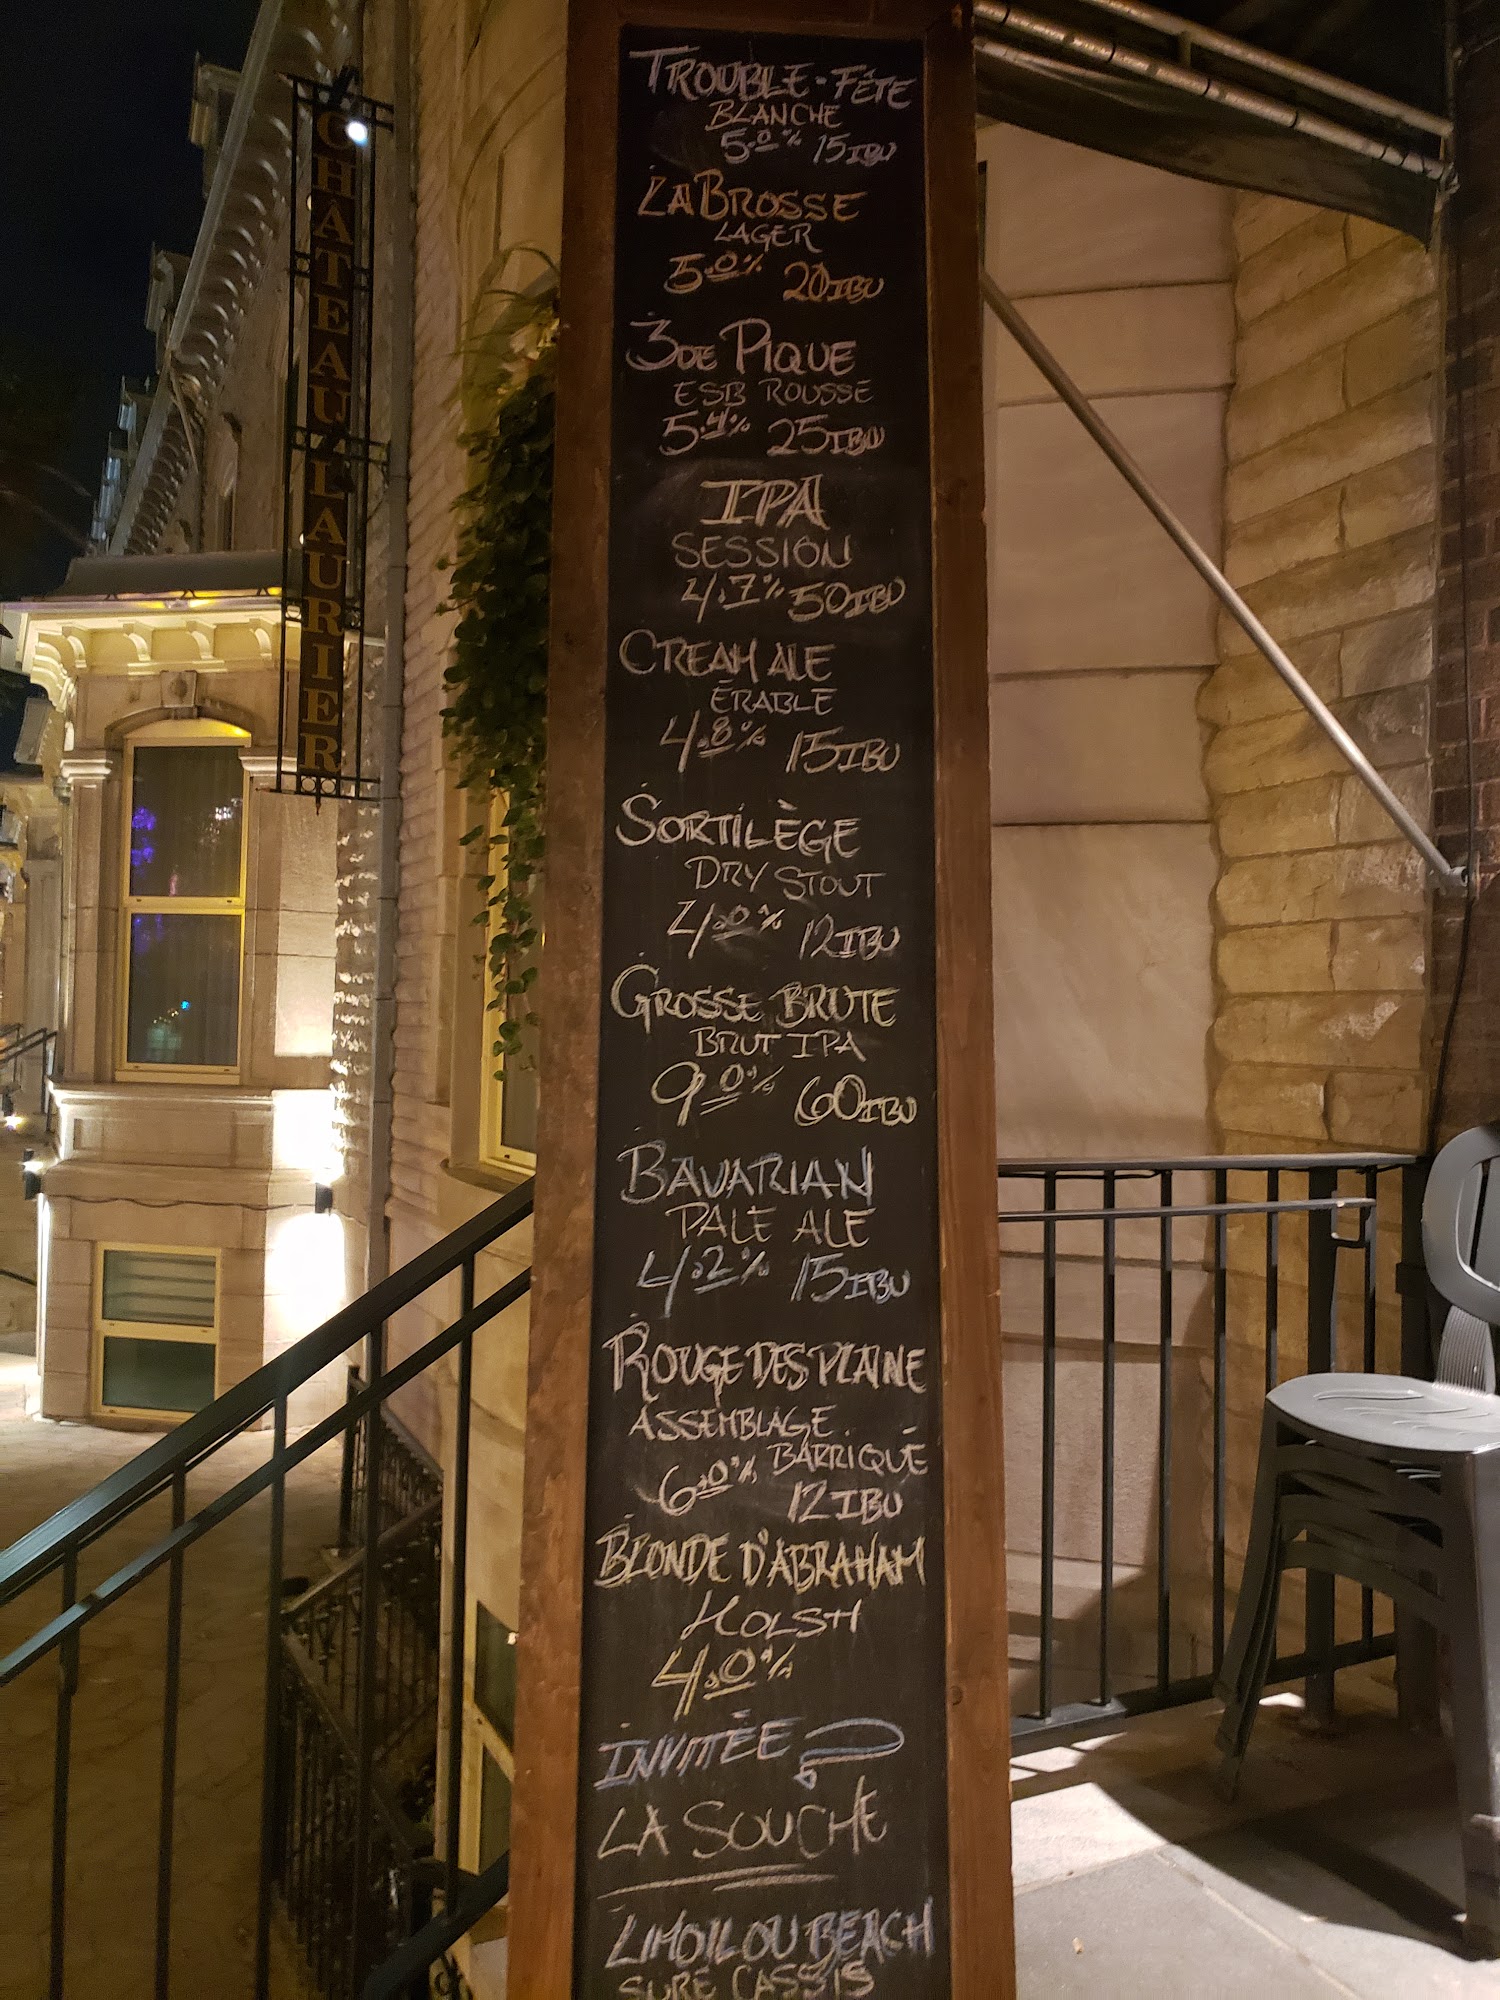 CHÂTEAU LAURIER
TROUBLE-FÊTE
BLANCHE
5.0% 15IBU
LA BROSSE
LAGER
5.0% 20IBU
3 DE PIQUE
ESB ROUSSE
5.4% 25IBU
IPA
SESSION
4.7% 50IBU
CREAM ALE
ÉRABLE
4.8% 15IBU
SORTILÈGE
DRY STOUT
4.0% 12IBU
GROSSE BRUTE
BRUT IPA
9.0% 60IBU
BAVARIAN
PALE ALE
4.2% 15IBU
ROUGE DES PLAINE
ASSEMBLAGE.
BARRIQUE
6.0% 12IBU
BLONDE D'ABRAHAM
KOLSH
4.0%
INVITÉE
LA SOUCHE
LIMOILOU BEACH
SURE CASSIS